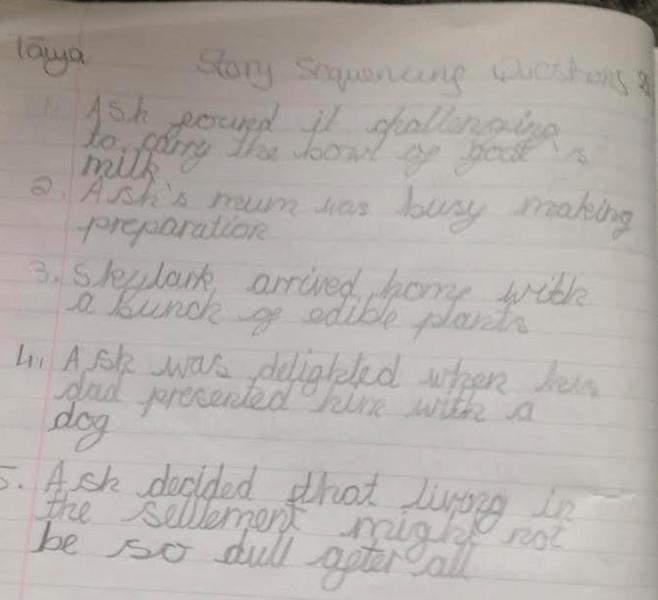 Taya Story Sequencing Questions
1. Ash found it challenging
to carry the bowl of goat's
milk
2. Ash's mum was busy making
preparation
3. Skylark arrived home with
a bunch of edible plants
4. Ash was delighted when his
dad presented him with a
dog
5. Ash decided that living in
the settlement might not
be so dull after all